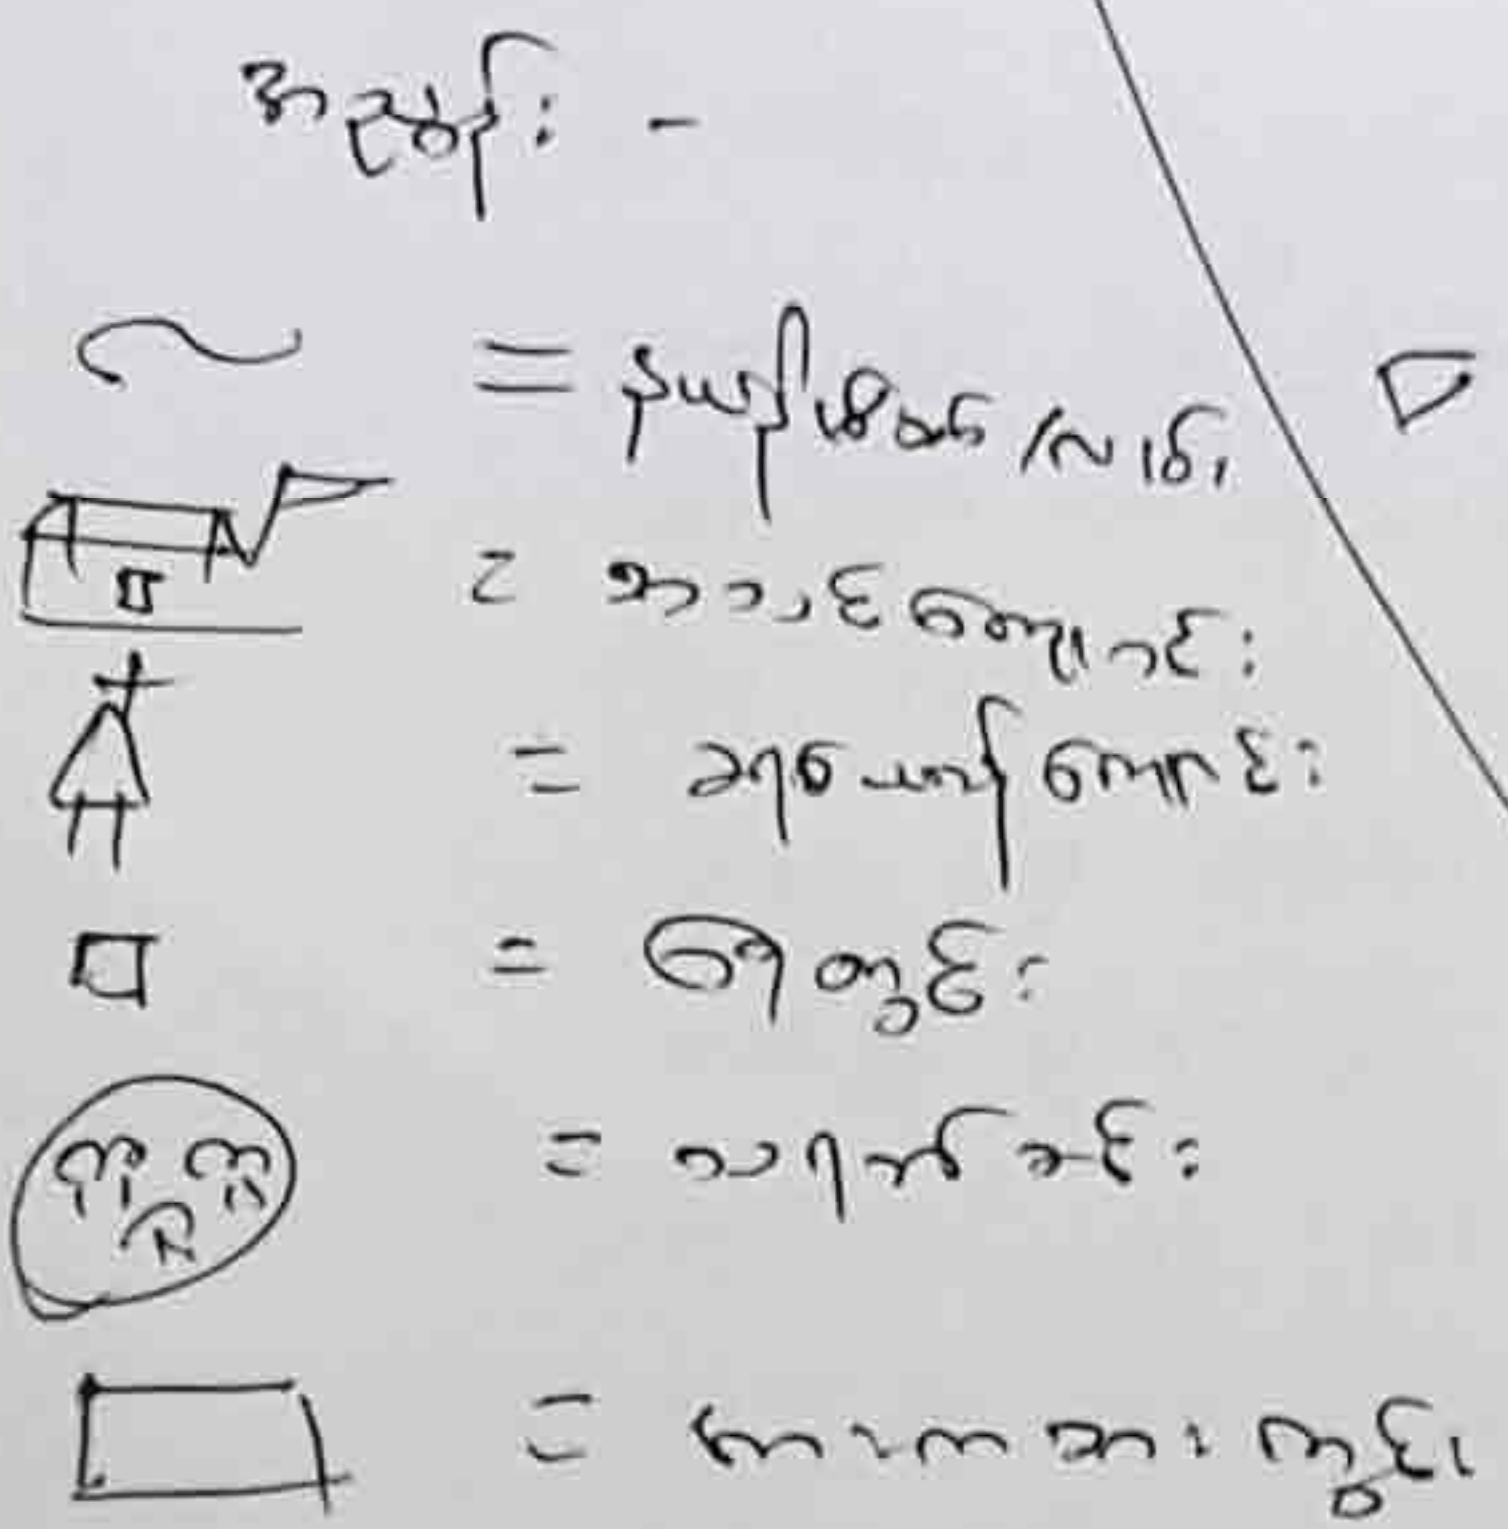 အညွှန်း -
= နယ်နိမိတ် / လမ်း
= စာသင်ကျောင်း
= ခရစ်ယာန်ကျောင်း
= ရေတွင်း
= သရက်ခင်း
= ကစားကွင်း